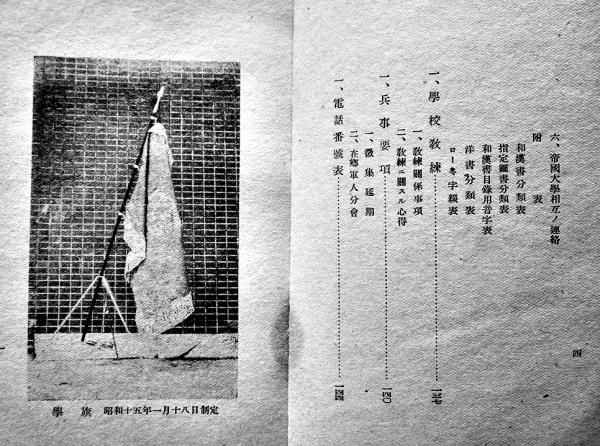 六、帝國大學相互ノ連絡
附表
和漢書分類表
指定圖書分類表
和漢書目錄用音字表
洋書分類表
ローマ字綴表
一、學校教練……一三七
一、教練關係事項
二、教練ニ關スル心得
一、兵事要項……一四〇
一、徵集延期
二、在鄕軍人分會
一、電話番號表……一四四
四
學旗 昭和十五年一月十八日制定